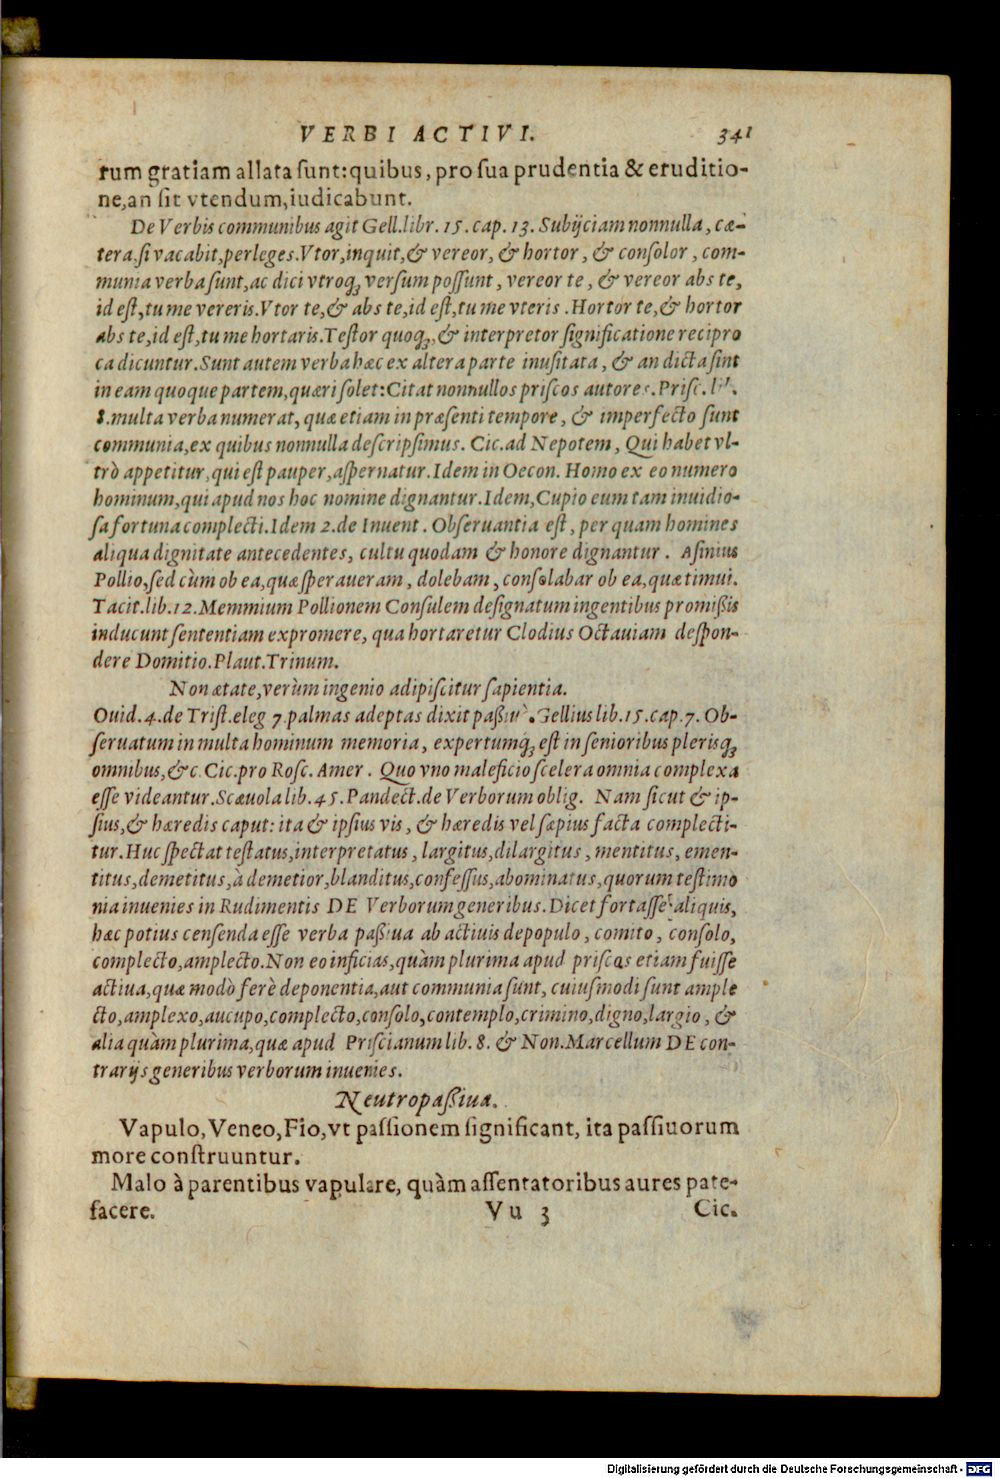 VERBI ACTIVI. 341
rum gratiam allata sunt: quibus, pro sua prudentia & eruditio-
ne, an sit vtendum, iudicabunt.
De Verbis communibus agit Gell. libr. 15. cap. 13. Subijciam nonnulla, cæ-
tera, si vacabit, perleges. Vtor, inquit, & vereor, & hortor, & consolor, com-
munia verba sunt, ac dici vtroq; versum possunt, vereor te, & vereor abs te,
id est, tu me vereris. Vtor te, & abs te, id est, tu me vteris. Hortor te, & hortor
abs te, id est, tu me hortaris. Testor quoq;, & interpretor significatione recipro
ca dicuntur. Sunt autem verba hæc ex altera parte inusitata, & an dicta sint
in eam quoque partem, quæri solet: Citat nonnullos priscos autores. Prisc. li.
8. multa verba numerat, quæ etiam in præsenti tempore, & imperfecto sunt
communia, ex quibus nonnulla descripsimus. Cic. ad Nepotem, Qui habet vl-
trò appetitur, qui est pauper, aspernatur. Idem in Oecon. Homo ex eo numero
hominum, qui apud nos hoc nomine dignantur. Idem, Cupio eum tam inuidio-
sa fortuna complecti. Idem 2. de Inuent. Obseruantia est, per quam homines
aliqua dignitate antecedentes, cultu quodam & honore dignantur. Asinius
Pollio, sed cùm ob ea, quæ speraueram, dolebam, consolabar ob ea, quæ timui.
Tacit. lib. 12. Memmium Pollionem Consulem designatum ingentibus promißis
inducunt sententiam expromere, qua hortaretur Clodius Octauiam despon-
dere Domitio. Plaut. Trinum.
Non ætate, verùm ingenio adipiscitur sapientia.
Ouid. 4. de Trist. eleg 7 palmas adeptas dixit paßiuè. Gellius lib. 15. cap. 7. Ob-
seruatum in multa hominum memoria, expertumq; est in senioribus plerisq;
omnibus, &c. Cic. pro Rosc. Amer. Quo vno maleficio scelera omnia complexa
esse videantur. Scæuola lib. 45. Pandect. de Verborum oblig. Nam sicut & ip-
sius, & hæredis caput: ita & ipsius vis, & hæredis vel sæpius facta complecti-
tur. Huc spectat testatus, interpretatus, largitus, dilargitus, mentitus, emen-
titus, demetitus, à demetior, blanditus, confessus, abominatus, quorum testimo
nia inuenies in Rudimentis DE Verborum generibus. Dicet fortasse aliquis,
hæc potius censenda esse verba paßiua ab actiuis depopulo, comito, consolo,
complecto, amplecto. Non eo inficias, quàm plurima apud priscos etiam fuisse
actiua, quæ modò ferè deponentia, aut communia sunt, cuiusmodi sunt ample
cto, amplexo, aucupo, complecto, consolo, contemplo, crimino, digno, largio, &
alia quàm plurima, quæ apud Priscianum lib. 8. & Non. Marcellum DE con-
trarijs generibus verborum inuenies.
Neutropaßiua.
Vapulo, Veneo, Fio, vt passionem significant, ita passiuorum
more construuntur.
Malo à parentibus vapulare, quàm assentatoribus aures pate-
facere. Vu 3 Cic.
Digitalisierung gefördert durch die Deutsche Forschungsgemeinschaft - DFG